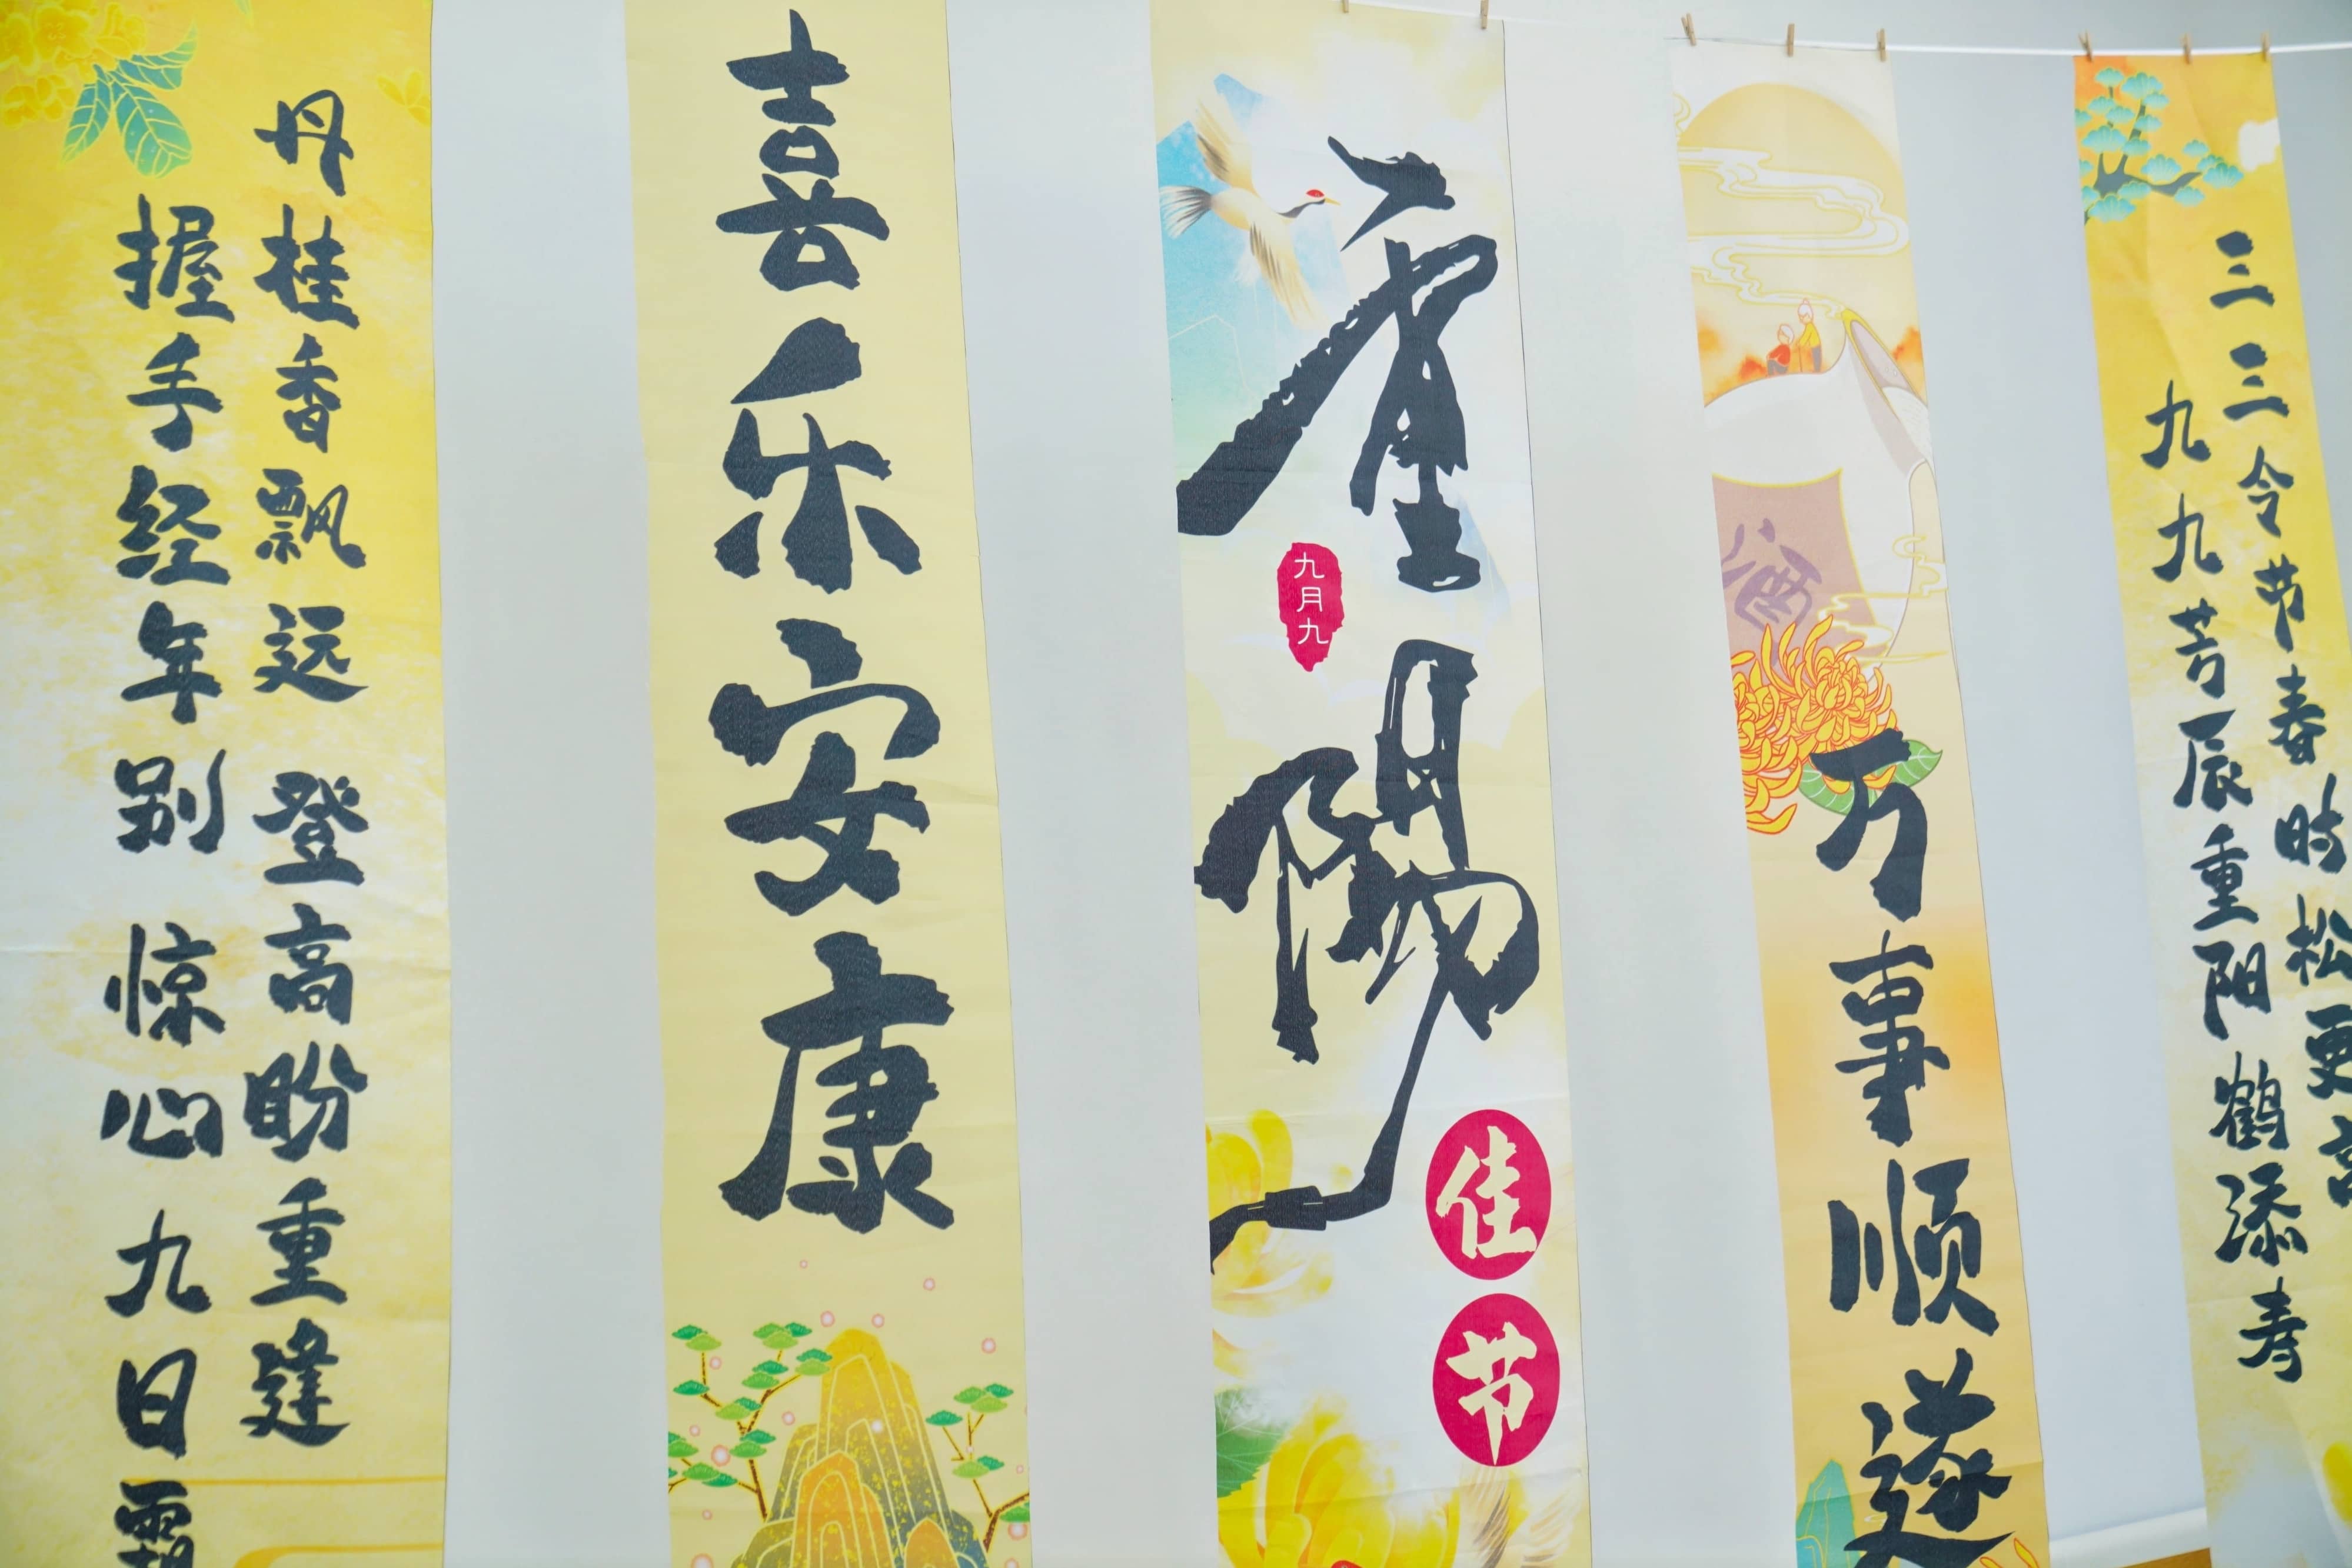 三三令节春时松更高
九九芳辰重阳鹤添寿
酒
万事顺遂
重陽
九月九
佳节
喜乐安康
丹桂香飘远登高盼重逢
握手经年别惊心九日霜